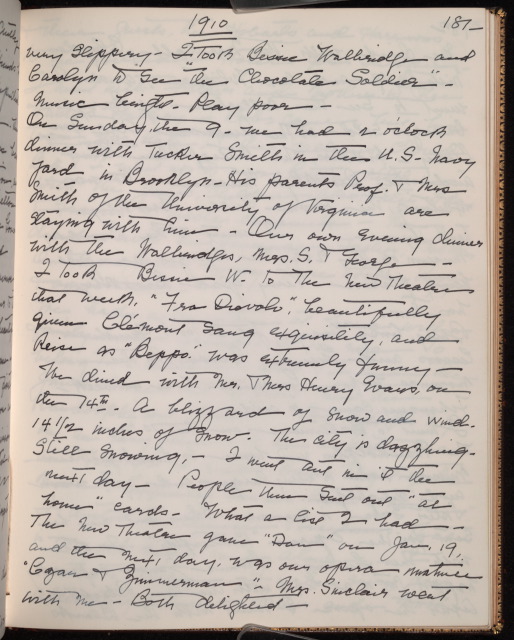 1910
181-
very slippery - I took Bessie Wallbridge and
Carolyn to see "the Chocolate Soldier" -
Music bright. Play poor -
On Sunday, the 9 - we had 2 o'clock
dinner with Tucker Smith in the U.S. Navy
Yard in Brooklyn - His parents Prof. & Mrs
Smith of the University of Virginia are
staying with him - Our own evening dinner
with the Wallbridges, Mrs. S. &
I took Bessie W. to The New Theatre
that week. "Fra Diavolo", beautifully
given Clément sang exquisitely, and
Reiss as "Beppo" was extremely funny -
We dined with Mr. & Mrs Henry Evans, on
the 14th. A blizzard of snow and wind.
14 1/2 inches of snow. The city is dazzling.
Still snowing, - I went out in it the
next day - People then send out "at
home" cards. What a list I had -
The New Theatre gave "Don" on Jan. 19,
and the next day, was our opera matinee
"Czar & Zimmerman" - Mrs. Sinclair went
with me - Both delighted -